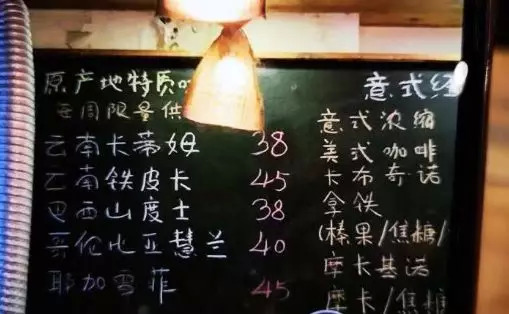 原产地特质
每周限量供
云南卡蒂姆 38
云南铁皮卡 45
巴西山度士 38
哥伦比亚慧兰 40
耶加雪菲 45
意式经
意式浓缩
美式咖啡
卡布奇诺
拿铁
(榛果/焦糖/
摩卡基诺
摩卡/焦糖